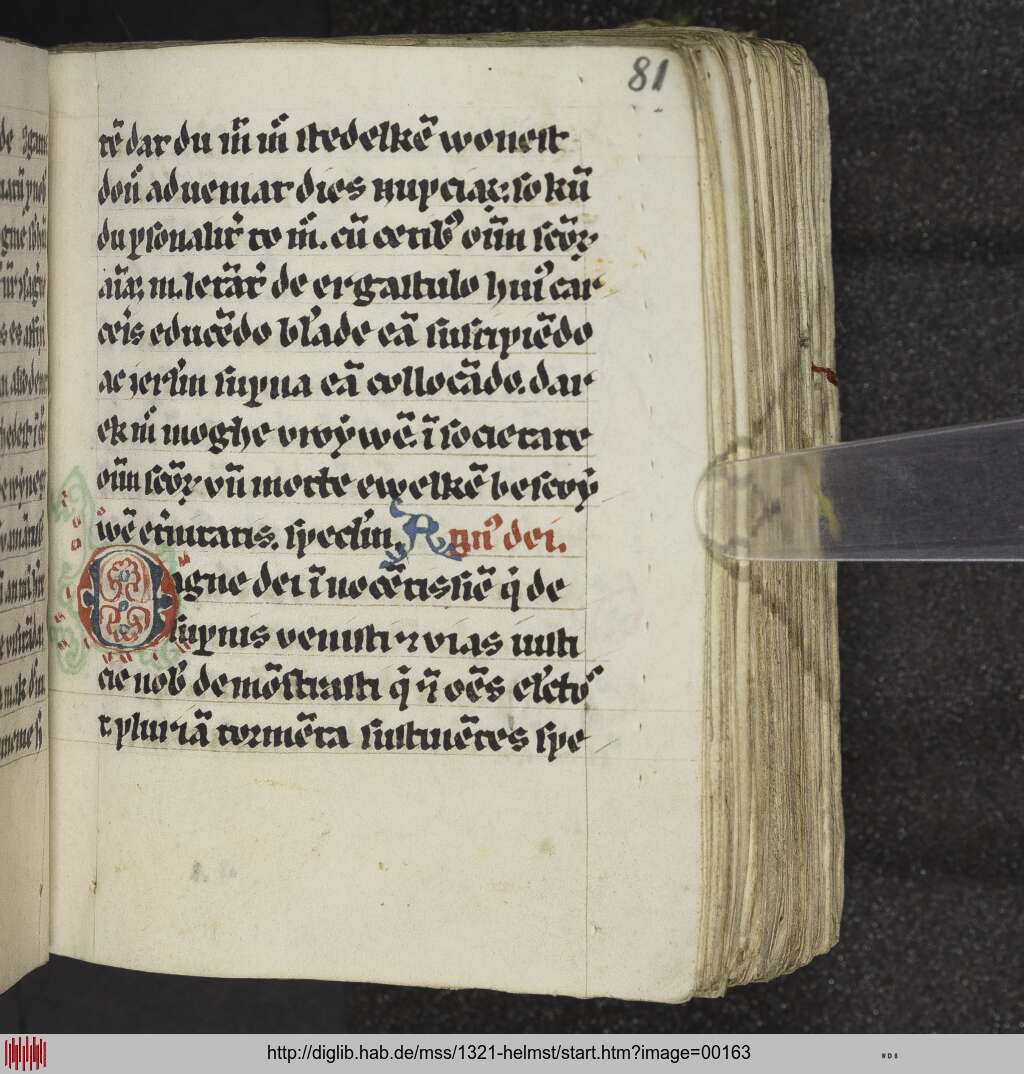 81
tē dar du in̄ mͥ stedelkē wonest
don̄ adueniat dies nupciaꝝ: so kū
du ꝑsonalit̓ to mͥ. cū cetibꝰ oīm scōꝝ
aīaꝝ in. letāt̓ de ergastulo huiꝰ car
ceris educēdo bl̓ade eā suscipiēdo
ac ierl̓m supna eā collocādo. dar
ek mͥ moghe vroywē ī societate
oīm scōꝝ vn̄ mochte ewelkē bescoy
wē et̓nitatis. specl̓m. Agnꝰ dei.
O agne dei īnocētissīē q̇ de
suꝑnis venisti ⁊ vias iusti
cie nob̓ demōstrasti q̇ ⁊ oēs el̓ctoꝰ
t plurīā tormēta sustinētes spe
http://diglib.hab.de/mss/1321-helmst/start.htm?image=00163